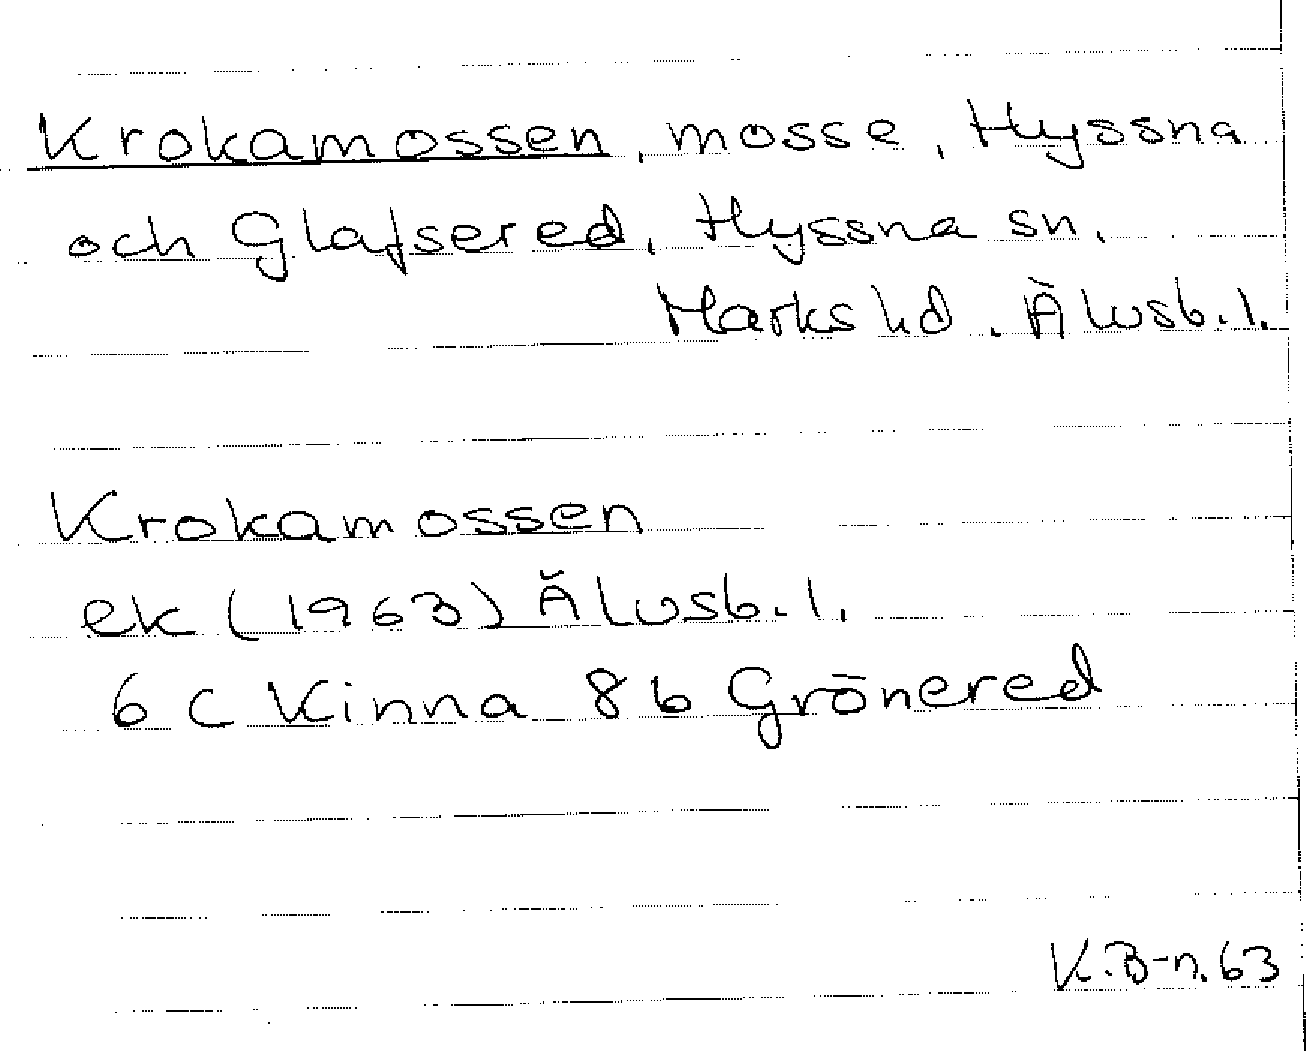 Krokamossen, mosse, Hyssna
och Glafsered, Hyssna sn.
Marks hd. Älvsb. l.
Krokamossen
ek (1963) Älvsb. l.
6 C Kinna 8 b Grönered
K.B-n. 63